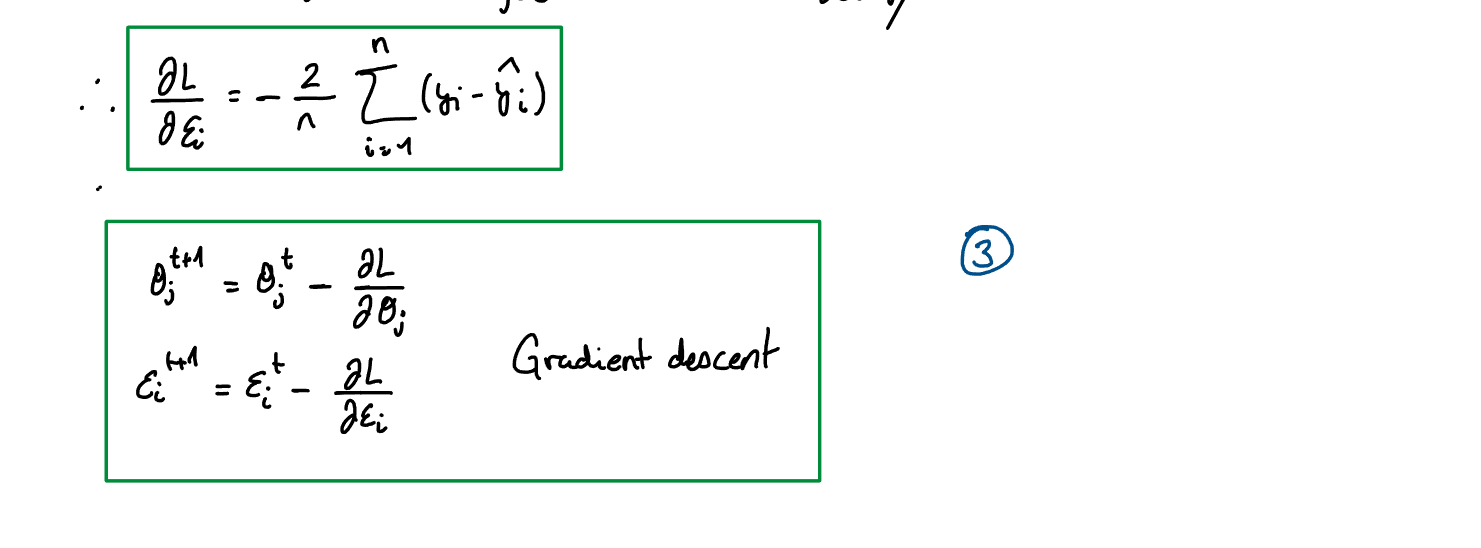 ∴ ∂L/∂ε_i = - 2/n ∑_{i=1}^{n} (y_i - ŷ_i)
θ_j^{t+1} = θ_j^t - ∂L/∂θ_j
③
ε_i^{t+1} = ε_i^t - ∂L/∂ε_i
Gradient descent